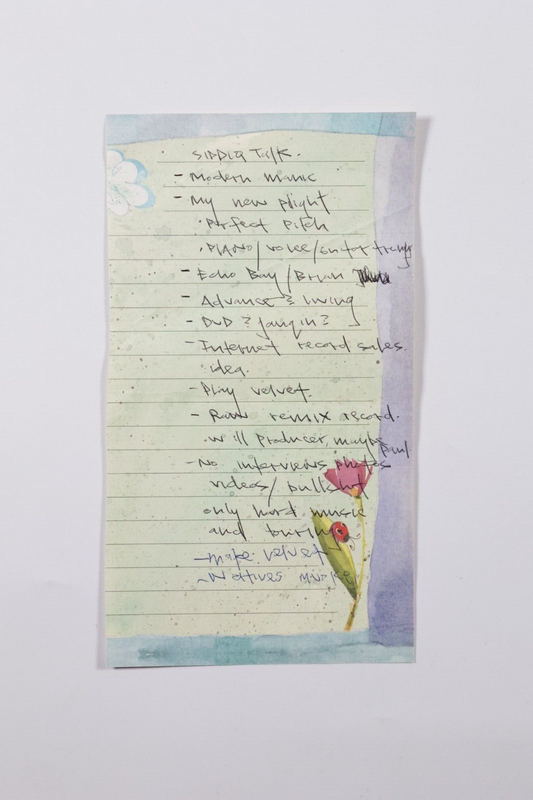 Talk.
- Modern manic
- My new plight
· Perfect Pitch
· PIANO/voice/guitar
- Echo Bay/Brian
- Advance? living
- DVD?
- Internet record sales
idea.
- Play velvet.
- Raw remix record.
· will producer, maybe Paul
- No interviews photos
videos/bullshit
only hard music
and touring
- make velvet
- Natives music